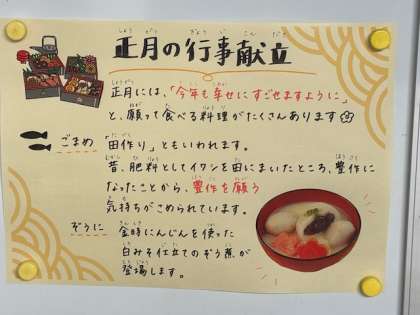 正月の行事献立
正月には、「今年も幸せにすごせますように」
と、願って食べる料理がたくさんあります
ごまめ 「田作り」ともいわれます。
昔、肥料としてイワシを田にまいたところ、豊作に
なったことから、豊作を願う
気持ちがこめられています。
ぞうに 金時にんじんを使った
白みそ仕立てのぞう煮が
登場します。